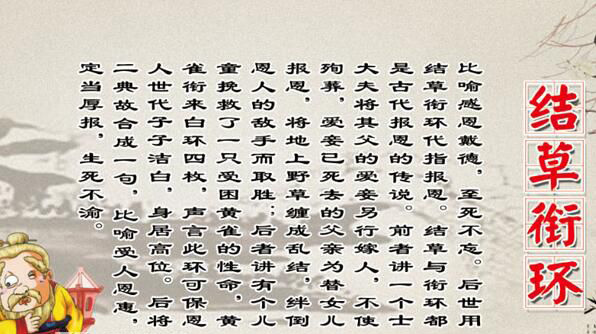 结草衔环
比喻感恩戴德,至死不忘。后世用
结草衔环代指报恩。结草与衔环都
是古代报恩的传说。前者讲一个士
大夫将其父的爱妾另行嫁人,不使
殉葬,爱妾已死去的父亲为替女儿
报恩,将地上野草缠成乱结,绊倒
恩人的敌手而取胜;后者讲有个儿
童挽救了一只受困黄雀的性命,黄
雀衔来白环四枚,声言此环可保恩
人世代子子洁白,身居高位。后将
二典故合成一句,比喻受人恩惠,
定当厚报,生死不渝。